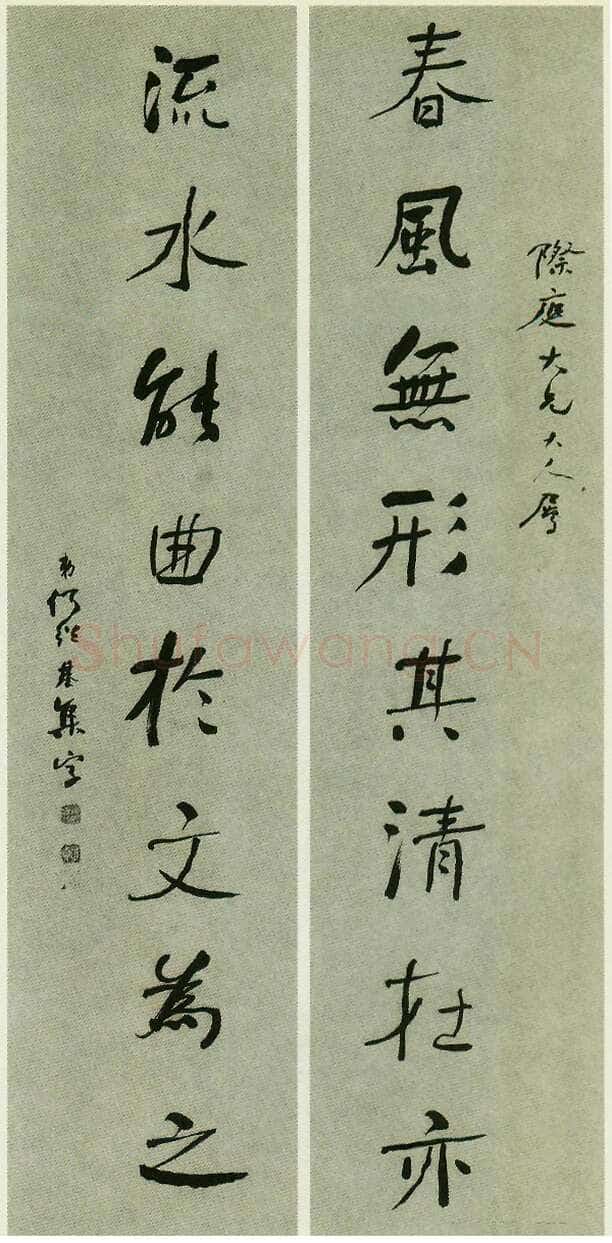 際庭大兄大人屬
春風無形其清在亦
流水能曲於文為之
弟何紹基集字
Shufawang.CN